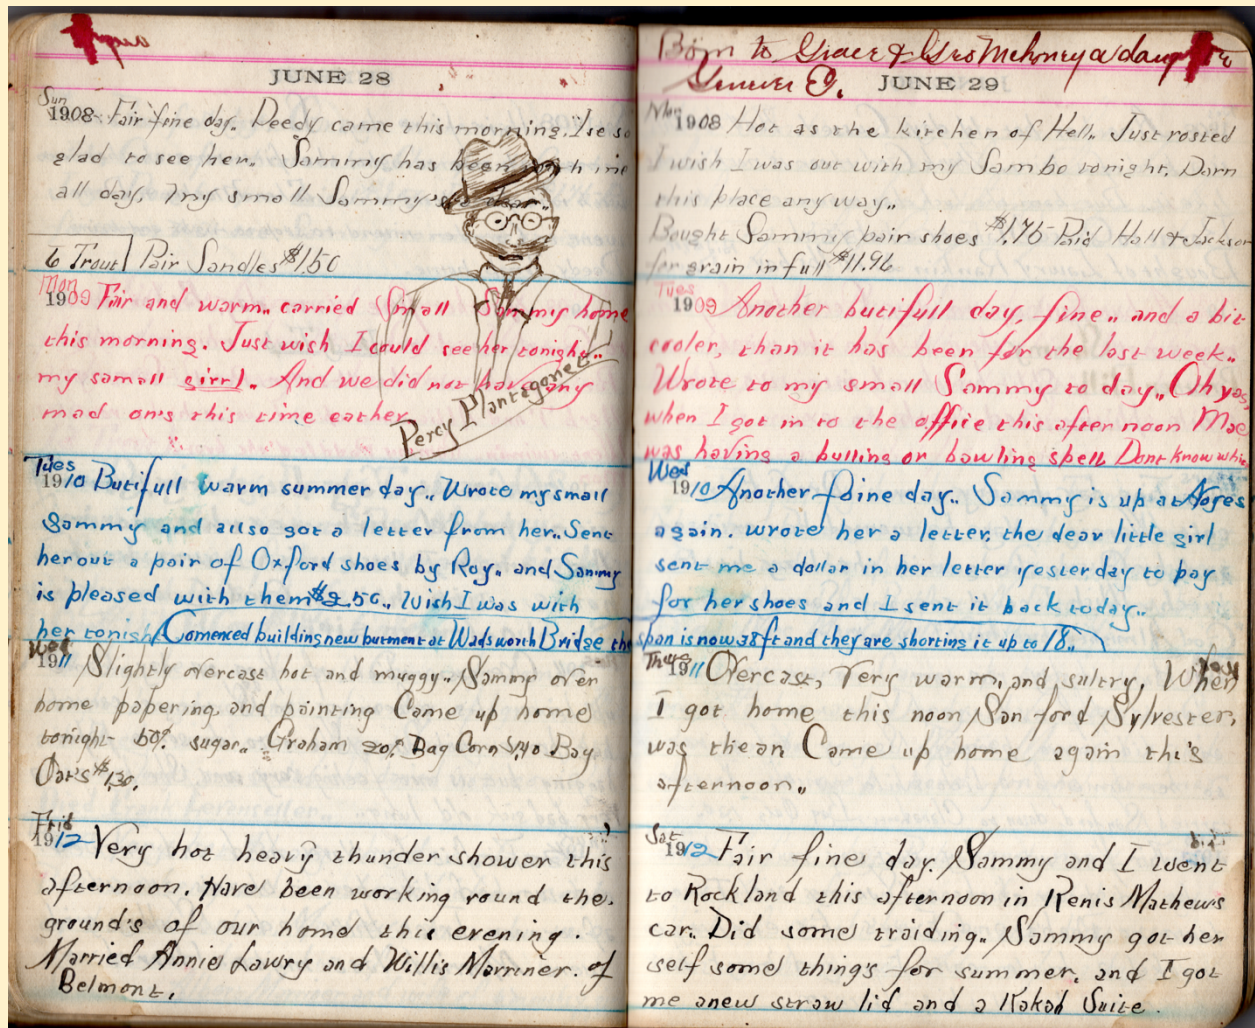 JUNE 28
Sun
1908 Fair fine day. Deedy came this morning. Ise so
glad to see her. Sammy has been with me
all day. My small Sammy's a dear..
6 Trout Pair Sandles $1.50
Mon
1909 Fair and warm.. carried Small Sammy home
this morning. Just wish I could see her tonight..
my samall girrl.. And we did not have any
mad on's this time eather
Percy Plantagenet
Tues
1910 Butifull warm summer day.. Wrote my small
Sammy and allso got a letter from her.. Sent
her out a pair of Oxford shoes by Roy.. and Sammy
is pleased with them $2.50.. Wish I was with
her tonight Comenced building new butment at Wadsworth Bridge the
Wed
1911 Slightly overcast hot and muggy.. Sammy over
home papering and painting Came up home
tonight 50¢ sugar.. Graham 20¢ Bag Corn $1.40 Bag
Oat's $1.30.
Frid
1912 Very hot heavy thunder shower this
afternoon. Have been working round the
ground's of our home this evening.
Married Annie Lawry and Willis Marriner. of
Belmont.
Born to Grace & Geo Mehoney a daughter
JUNE 29
Mon
1908 Hot as the kitchen of Hell.. Just rosted
I wish I was out with my Sambo tonight. Darn
this place any way..
Bought Sammy pair shoes $1.75 Paid Hall & Jackson
for grain in full $11.96
Tues
1909 Another butifull day, fine.. and a bit
cooler, than it has been for the last week..
Wrote to my small Sammy to day.. Oh yes,
when I got in to the office this after noon Mae
was having a bulling or bawling spell Dont know which
Wed
1910 Another foine day.. Sammy is up at Noyes
again. wrote her a letter, the dear little girl
sent me a dollar in her letter yesterday to pay
for her shoes and I sent it back today..
span is now 38 ft and they are shorting it up to 18..
Thurs
1911 Overcast, Very warm, and sultry, When
I got home this noon San ford Sylvester,
was thean Came up home again this
afternoon..
Sat
1912 Fair fine day. Sammy and I went
to Rockland this afternoon in Renis Mathew's
car.. Did some traiding.. Sammy got her
self some thing's for summer, and I got
me anew straw lid and a Kakah Suite.